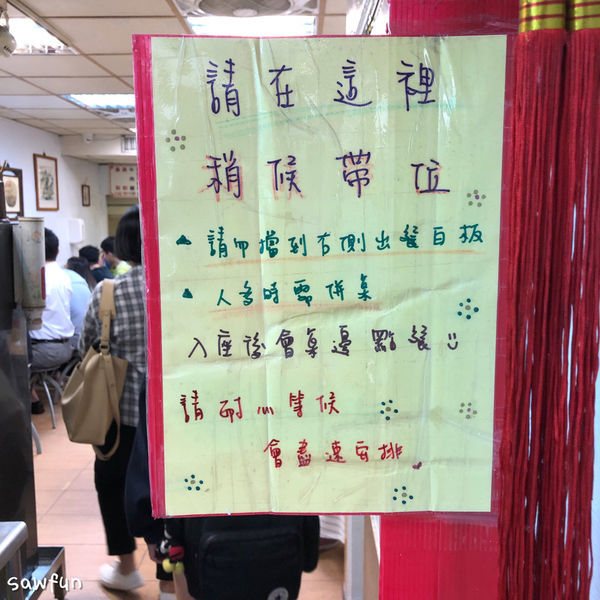 請在這裡
稍候帶位
▲ 請勿擋到右側出餐白板
▲ 人多時需併桌
入座後會桌邊點餐
請耐心等候
會盡速安排
sawfun